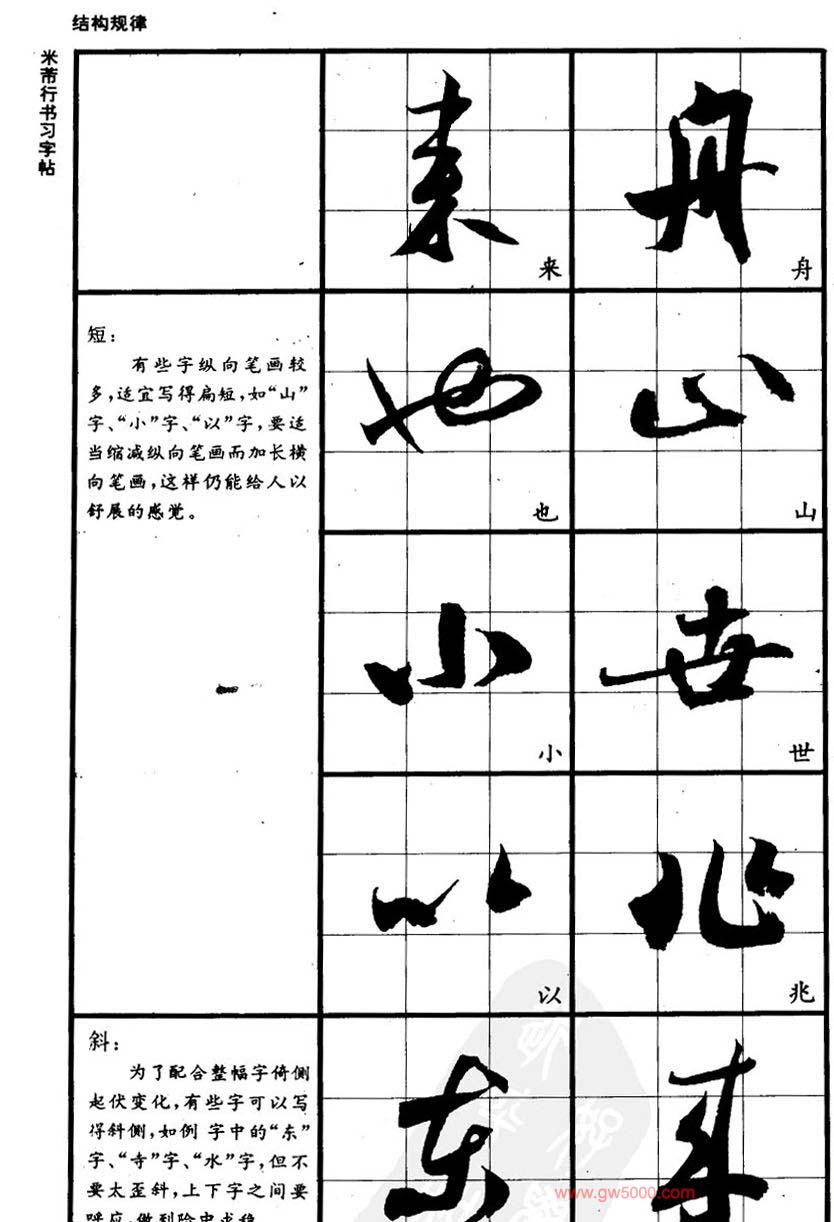 结构规律
米芾行书习字帖
来
舟
短：
有些字纵向笔画较
多，适宜写得扁短，如“山”
字、“小”字、“以”字，要适
当缩减纵向笔画而加长横
向笔画，这样仍能给人以
舒展的感觉。
也
山
小
世
以
兆
斜：
为了配合整幅字倚侧
起伏变化，有些字可以写
得斜侧，如例字中的“东”
字、“寺”字、“水”字，但不
要太歪斜，上下字之间要
呼应，做到险中求稳。
www.gw5000.com